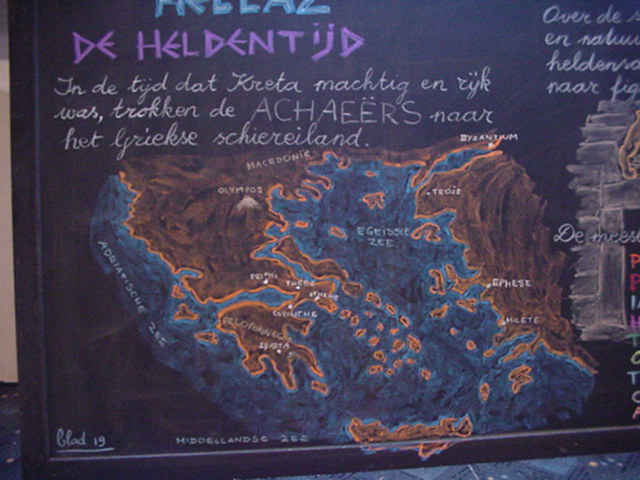 HELLAZ
DE HELDENTIJD
In de tijd dat Kreta machtig en rijk
was, trokken de ACHAEËRS naar
het Griekse schiereiland.
MACEDONIË
BYZANTIUM
OLYMPOS
TROÏE
EGEÏSCHE
ZEE
ADRIATISCHE ZEE
DELPHI
THEBE
ATHENE
CORINTHE
PELOPONNES
SPARTA
EPHESE
MILETE
MIDDELLANDSE ZEE
Blad 19
Over de
en natuu
heldensa
naar fig
De meest